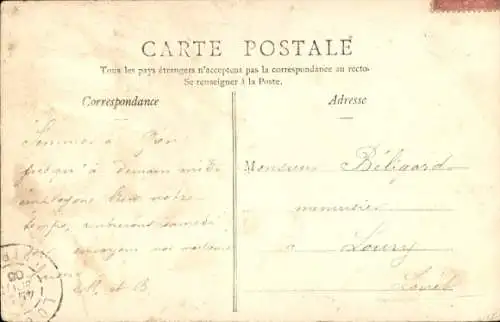 CARTE POSTALE
Tous les pays étrangers n'acceptent pas la correspondance au recto.
Se renseigner à la Poste.
Correspondance
Adresse
Sommes à
jusqu'à demain midi
employons bien notre
temps, rentrerons samedi
envoyons nos meilleurs
et B.
Monsieur Béligard
menuisier
à Loury
Loiret